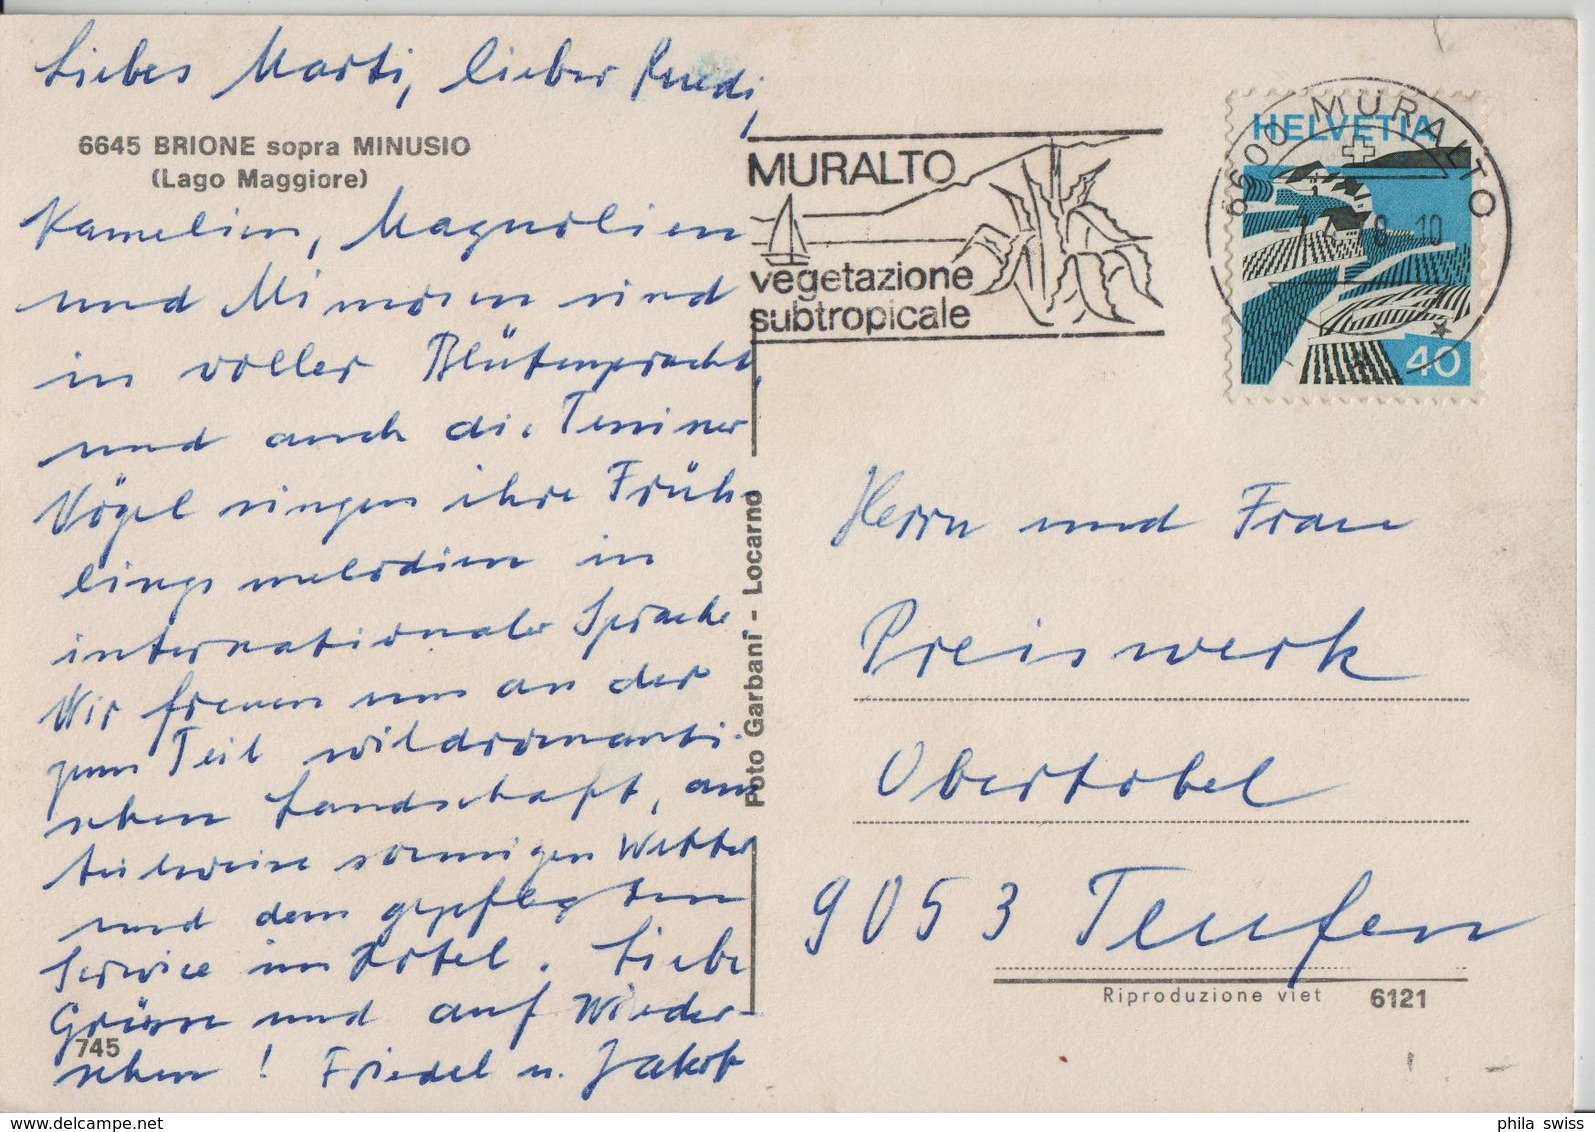 Liebes Marti, lieber Ruedi,
6645 BRIONE sopra MINUSIO
(Lago Maggiore)
Kamelien, Magnolien
und Mimosen sind
in voller Blütenpracht,
und auch die Tessiner
Vögel singen ihre Früh-
lingsmelodien in
internationaler Sprache.
Wir freuen uns an der
zum Teil wildromanti-
schen Landschaft, am
teilweise sonnigen Wetter
und dem gepflegten
Service im Hotel. Liebe
Grüsse und auf Wieder-
sehen! Friedel u. Jakob
745
Foto Garbani - Locarno
MURALTO
vegetazione
subtropicale
6600 MURALTO
HELVETIA
40
Herrn und Frau
Preiswerk
Obertobel
9053 Teufen
Riproduzione viet 6121
phila swiss